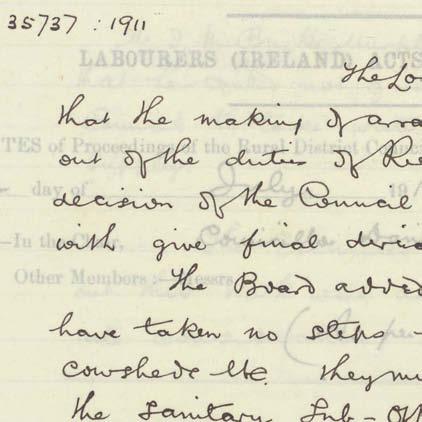 35737 : 1911
LABOURERS (IRELAND) ACTS
The Lo
that the making of arra
TES of Proceedings of the Rural District Council
out of the duties of
day of July 19
decision of the Council
In the Chair,
with give final
Other Members :—Messrs.
The Board added
have taken no steps
cowsheds etc. they
the Sanitary Sub-Off